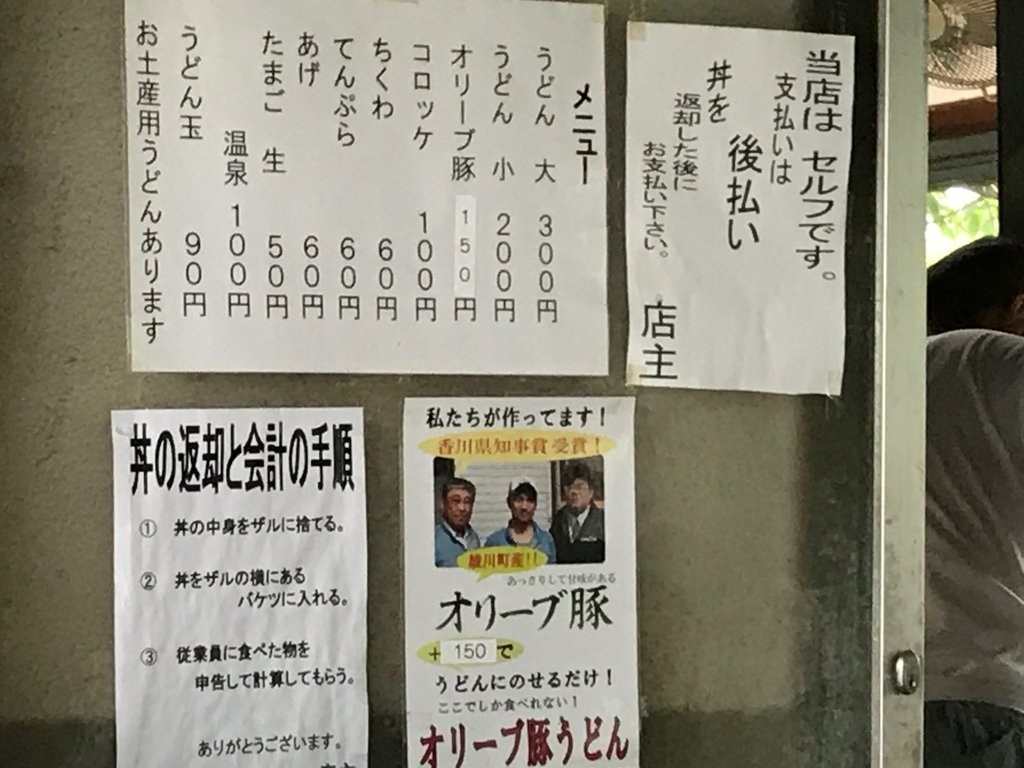 メニュー
うどん 大 300円
うどん 小 200円
オリーブ豚 150円
コロッケ 100円
ちくわ 60円
てんぷら 60円
あげ 60円
たまご 生 50円
温泉 100円
うどん玉 90円
お土産用うどんあります
当店は セルフです。
支払いは
後払い
丼を
返却した後に
お支払い下さい。
店主
丼の返却と会計の手順
① 丼の中身をザルに捨てる。
② 丼をザルの横にある
バケツに入れる。
③ 従業員に食べた物を
申告して計算してもらう。
ありがとうございます。
私たちが作ってます!
香川県知事賞 受賞!
綾川町産!!
あっさりして甘味がある
オリーブ豚
+150で
うどんにのせるだけ!
ここでしか食べれない!
オリーブ豚うどん